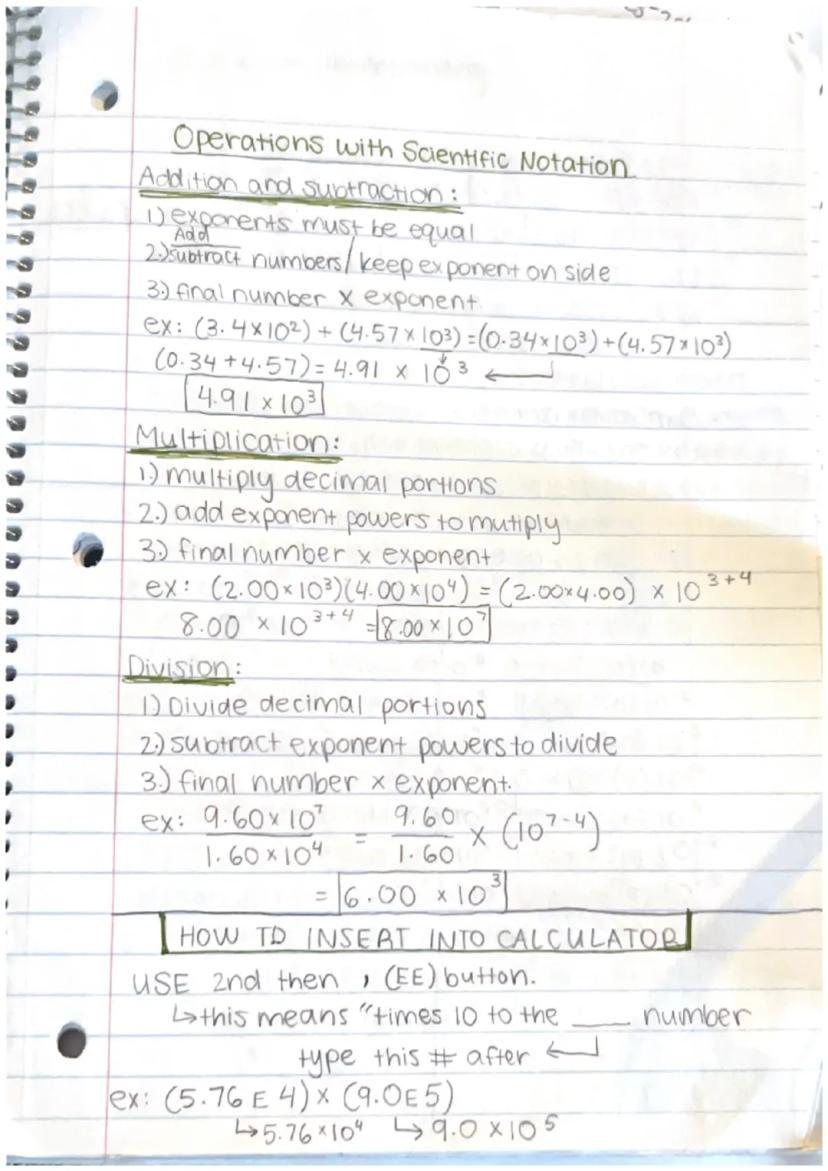 Operations with Scientific Notation
Addition and subtraction:
1) exponents must be equal
Add
2.) subtract numbers/keep exponent on side
3.) final number x exponent.
ex: (3.4×10²) + (4.57×10³) = (0.34×10³) + (4.57×10³)
(0.34 + 4.57) = 4.91 × 10³ ←
4.91 × 10³
Multiplication:
1.) multiply decimal portions
2.) add exponent powers to mutiply
3.) final number x exponent
ex: (2.00×10³)(4.00×10⁴) = (2.00×4.00) × 10³⁺⁴
8.00 × 10³⁺⁴ = 8.00×10⁷
Division:
1.) Divide decimal portions
2.) subtract exponent powers to divide
3.) final number x exponent.
ex: 9.60×10⁷ / 1.60×10⁴ = 9.60 / 1.60 × (10⁷⁻⁴)
= 6.00 × 10³
HOW TO INSERT INTO CALCULATOR
USE 2nd then , (EE) button.
↳ this means "times 10 to the ___ number
type this # after ←
ex: (5.76 E 4) × (9.0E5)
↳ 5.76×10⁴ ↳ 9.0 × 10⁵